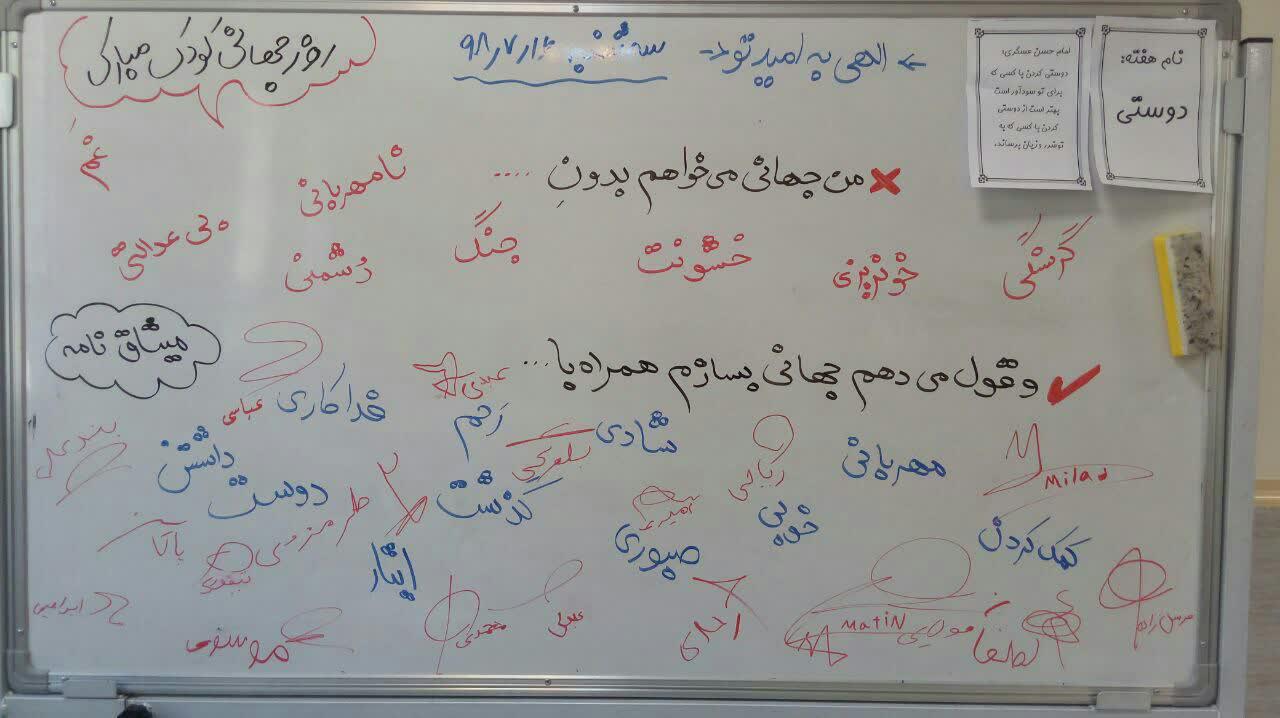 نام هفته:
دوستی
امام حسن عسگری:
دوستی کردن با کسی که
برای تو سودآور است
بهتر است از دوستی
کردن با کسی که به
تو شر و زیان برساند.
الهی به امید تو
سه شنبه ۹۸٫۷٫۱۶
روز جهانی کودک مبارک
من جهانی می‌خواهم بدونِ ....
نامهربانی
غم
گرسنگی
خونریزی
خشونت
جنگ
دُشمنی
بی عدالتی
میثاق نامه
و قول می دهم جهانی بسازم همراه با ...
عبدی
فداکاری
عباسی
رَحم
شادی
مهربانی
Milad
دوست داشتن
گذشت
خوبی
کمک کردن
صبوری
امیری
ایثار
ابراهیمی
موسوی
محمدی
مولایی
MATIN
لطفی